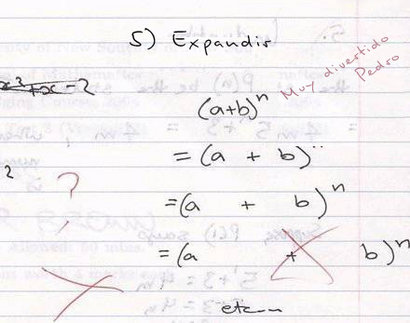 5) Expandir
x² + x - 2
Muy divertido
Pedro
(a+b)ⁿ
= (a + b)ⁿ
?
= (a + b)ⁿ
= (a + b)ⁿ
etc...